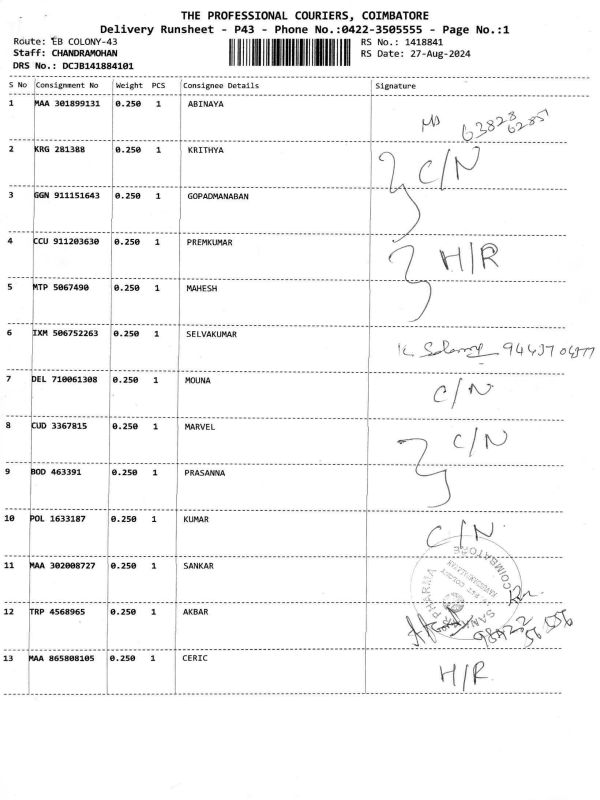 THE PROFESSIONAL COURIERS, COIMBATORE
Delivery Runsheet - P43 - Phone No.:0422-3505555 - Page No.:1
Route: EB COLONY-43 RS No.: 1418841
Staff: CHANDRAMOHAN RS Date: 27-Aug-2024
DRS No.: DCJB141884101
S No Consignment No Weight PCS Consignee Details Signature
1 MAA 301899131 0.250 1 ABINAYA
2 KRG 281388 0.250 1 KRITHYA C/N
3 GGN 911151643 0.250 1 GOPADMANABAN
4 CCU 911203630 0.250 1 PREMKUMAR H/R
5 MTP 5067490 0.250 1 MAHESH
6 IXM 506752263 0.250 1 SELVAKUMAR
7 DEL 710061308 0.250 1 MOUNA C/N
8 CUD 3367815 0.250 1 MARVEL C/N
9 BOD 463391 0.250 1 PRASANNA
10 POL 1633187 0.250 1 KUMAR C/N
11 MAA 302008727 0.250 1 SANKAR
PHARMA COIMBATORE
12 TRP 4568965 0.250 1 AKBAR
13 MAA 865808105 0.250 1 CERIC H/R